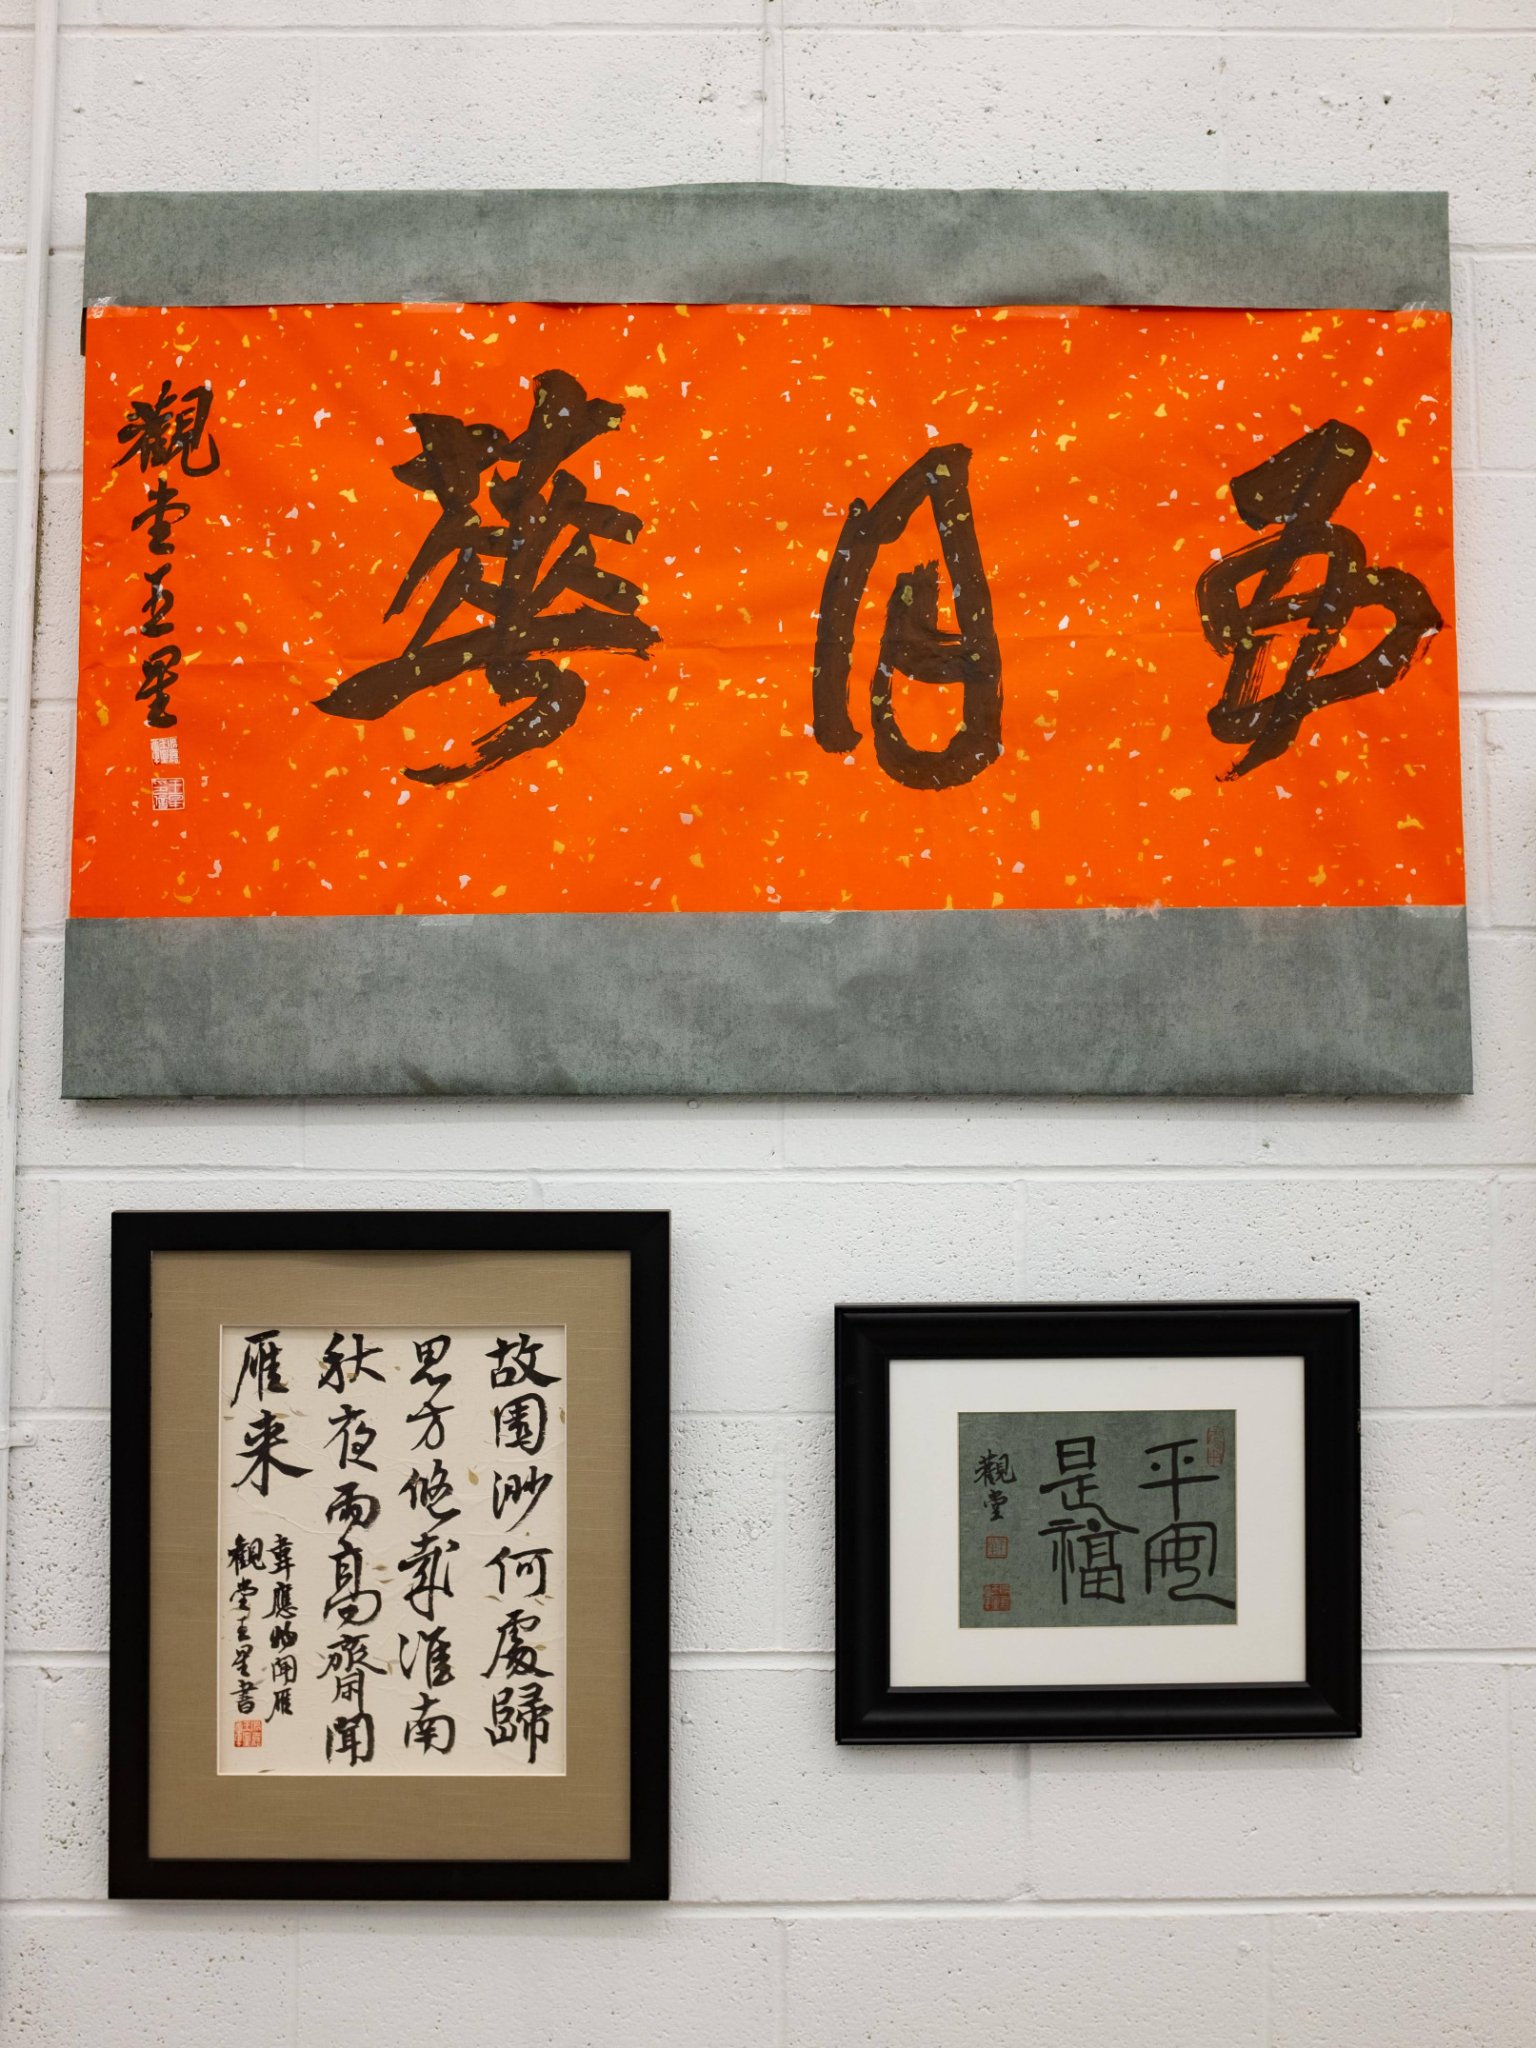 華
觀堂王星
故園渺何處歸
思方悠哉淮南
秋夜雨高齋聞
雁来
韋應物聞雁
觀堂王星書
平安
是福
觀堂